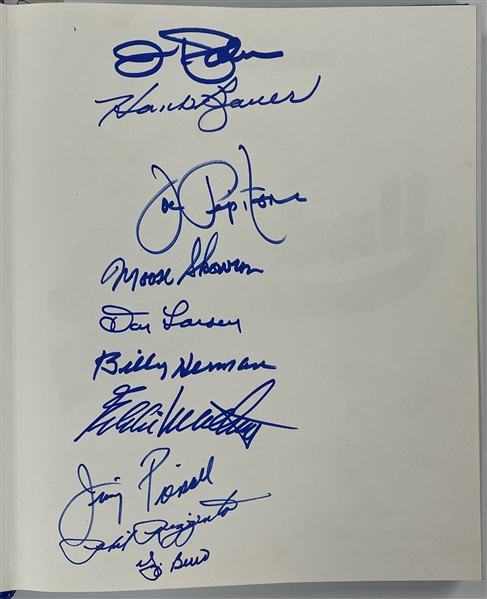 Hank Bauer
Joe Pepitone
Moose Skowron
Don Larsen
Billy Herman
Eddie Mathews
Jim Piersall
Phil Rizzuto
Yogi Berra